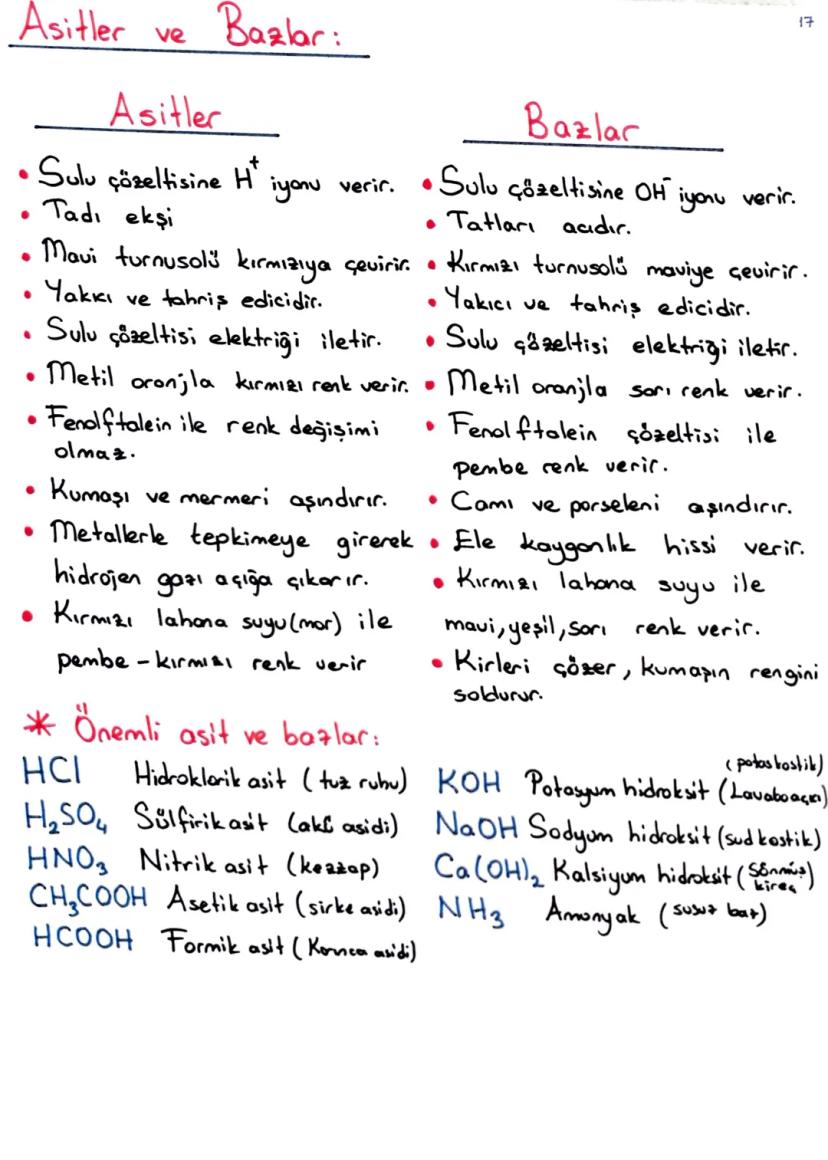 Asitler ve Bazlar:
17
Asitler
• Sulu çözeltisine H⁺ iyonu verir.
• Tadı ekşi
• Mavi turnusolü kırmızıya çevirir.
• Yakıcı ve tahriş edicidir.
• Sulu çözeltisi elektriği iletir.
• Metil oranjla kırmızı renk verir.
• Fenolftalein ile renk değişimi
olmaz.
• Kumaşı ve mermeri aşındırır.
• Metallerle tepkimeye girerek
hidrojen gazı açığa çıkarır.
• Kırmızı lahana suyu(mor) ile
pembe - kırmızı renk verir
Bazlar
• Sulu çözeltisine OH⁻ iyonu verir.
• Tatları acıdır.
• Kırmızı turnusolü maviye çevirir.
• Yakıcı ve tahriş edicidir.
• Sulu çözeltisi elektriği iletir.
• Metil oranjla sarı renk verir.
• Fenolftalein çözeltisi ile
pembe renk verir.
• Camı ve porseleni aşındırır.
• Ele kayganlık hissi verir.
• Kırmızı lahana suyu ile
mavi, yeşil, sarı renk verir.
• Kirleri çözer, kumaşın rengini
soldurur.
* Önemli asit ve bazlar:
HCl Hidroklorik asit (tuz ruhu)
H₂SO₄ Sülfirik asit (akü asidi)
HNO₃ Nitrik asit (kezzap)
CH₃COOH Asetik asit (sirke asidi)
HCOOH Formik asit (Karınca asidi)
(potas kostik)
KOH Potasyum hidroksit (Lavabo açıcı)
NaOH Sodyum hidroksit (sud kostik)
Ca(OH)₂ Kalsiyum hidroksit (Sönmüş
kireç)
NH₃ Amonyak (susuz baz)